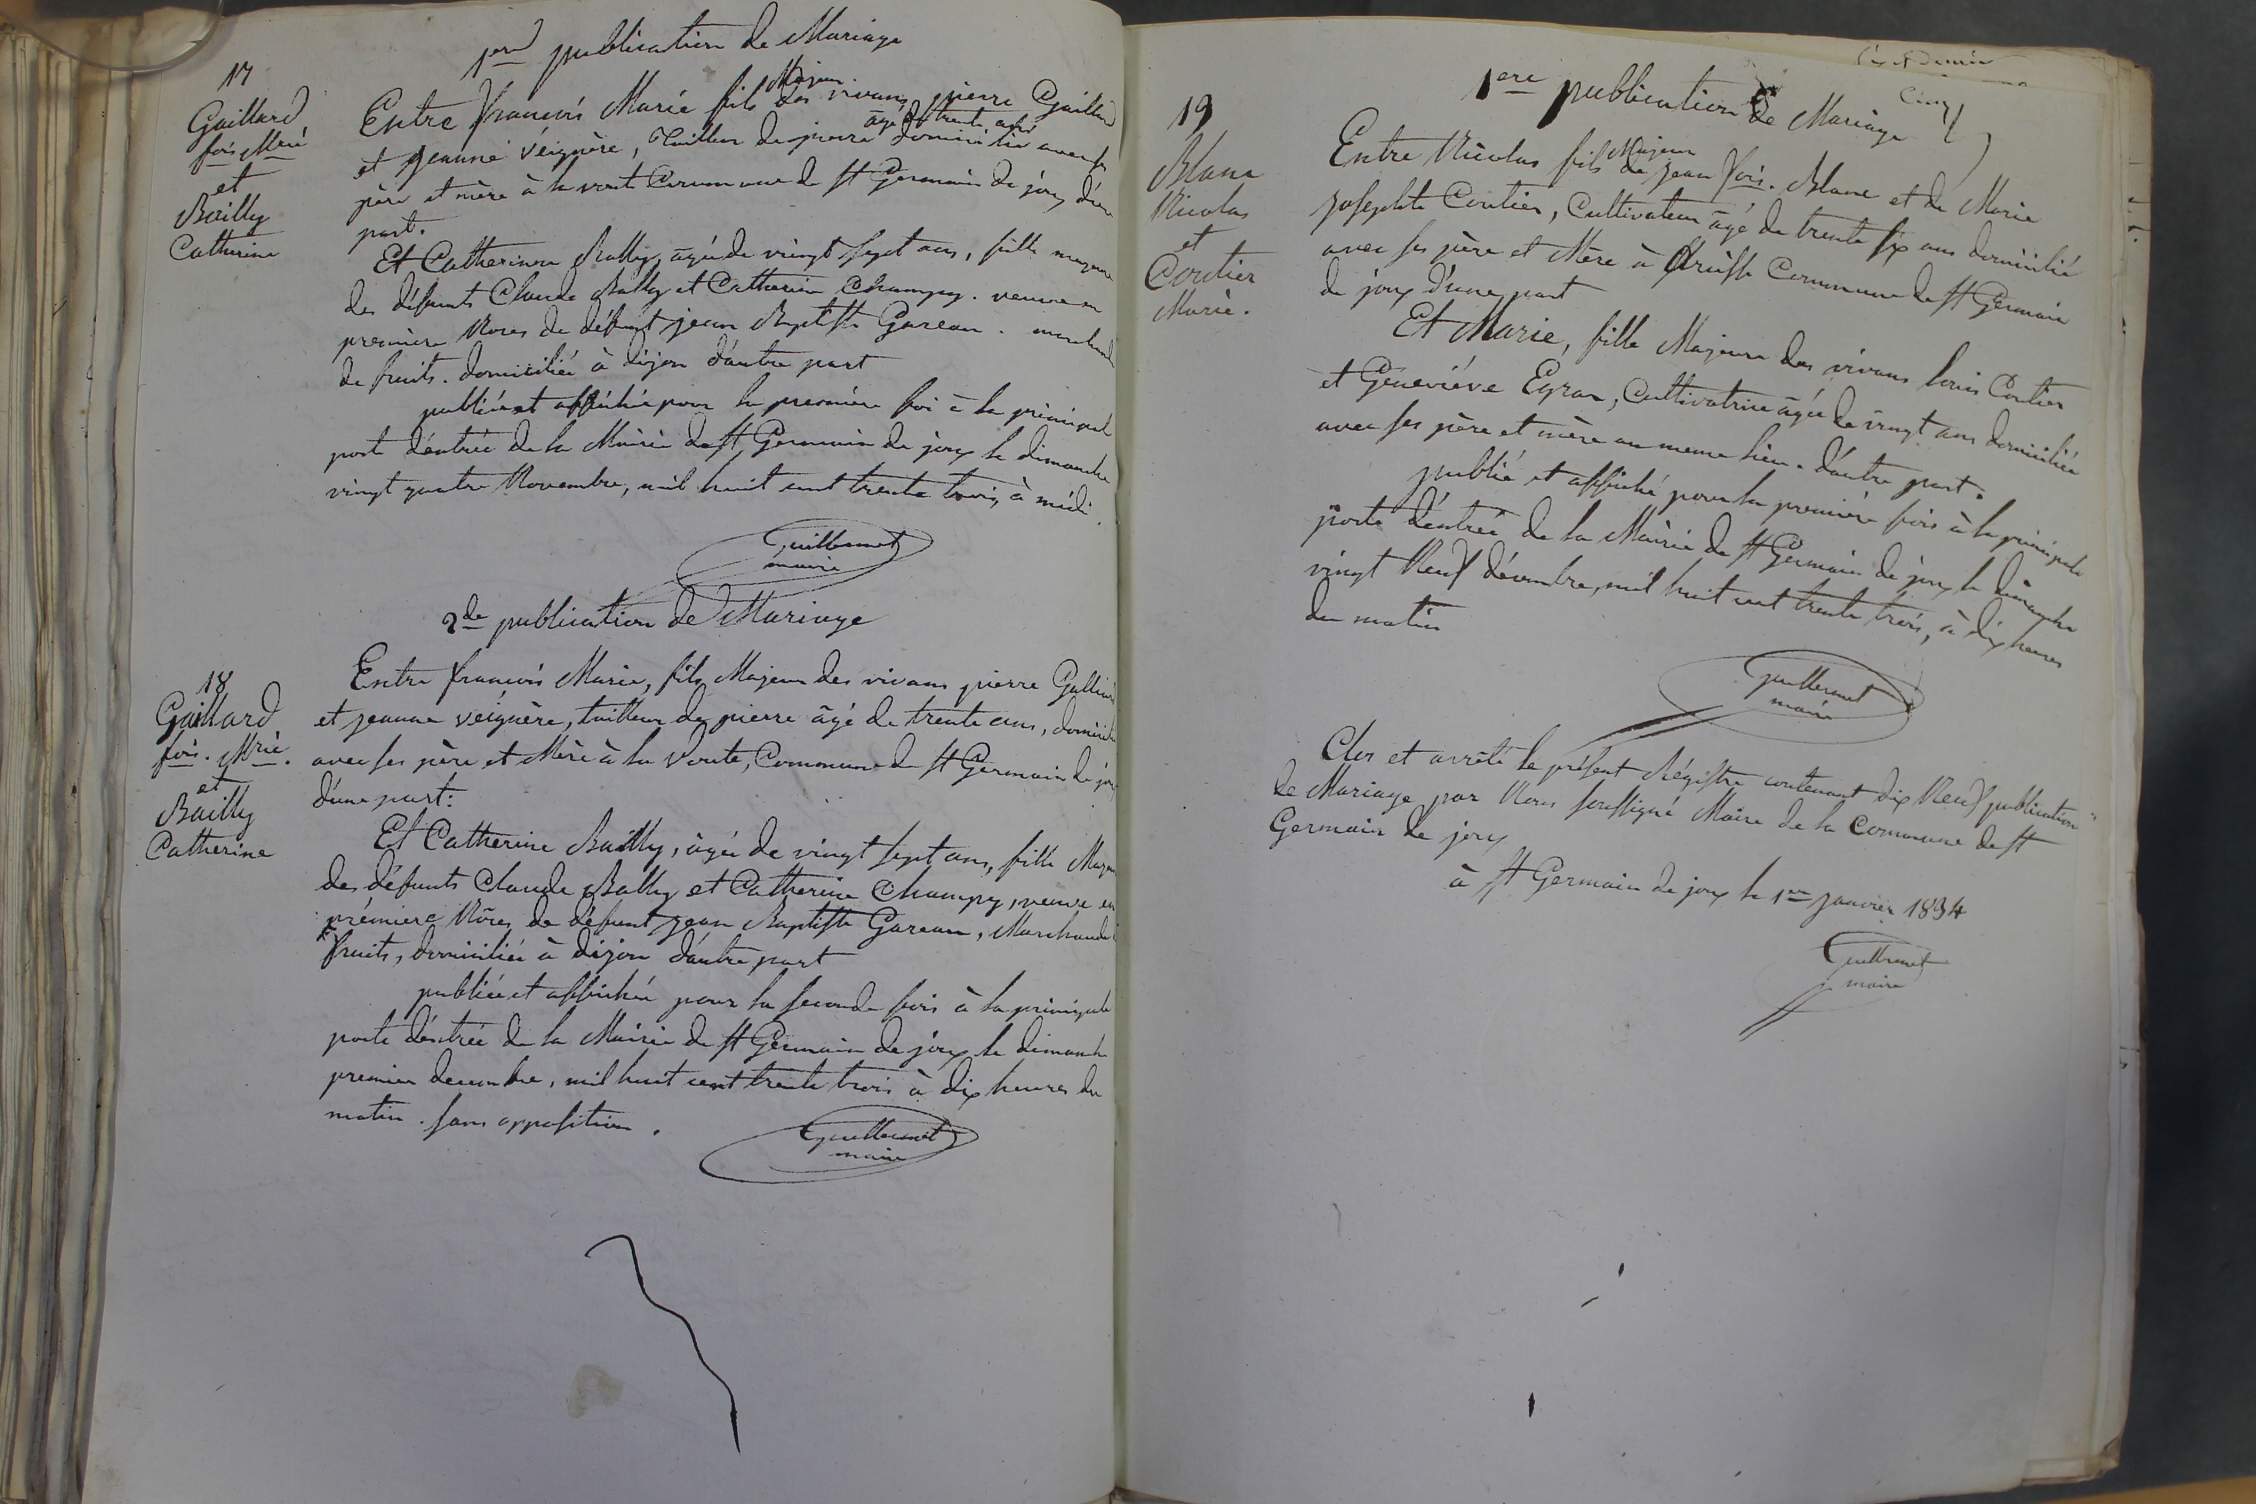 1ere publication de Mariage
17
Gaillard
fois Mrie
et
Bailly
Catherine
Entre francois Marie fils Majeur des vivans pierre Gaillard
et jeanne véignère, Tailleur de pierre âgé de trente ans domicilié avec ses
père et mère à la voute Commune de St Germain de joux d'une
part.
Et Catherine Bailly, âgée de vingt sept ans, fille majeure
des défunts Claude Bally et Catherine Champy. veuve en
première Noces de défunt jean Baptiste Gareau. marchande
de fruits. domiciliée à dijon d'autre part
publiée et affichée pour la première foi à la principal
porte d'entrée de la Mairie de St Germain de joux le dimanche
vingt quatre Novembre, mil huit cent trente trois, à midi.
Guillermet
maire
2de publication de Mariage
18
Gaillard
fois. Mrie.
et
Bailly
Catherine
Entre francois Marie, fils Majeur des vivans pierre Galliard
et jeanne véignère, tailleur de pierre âgé de trente ans, domicilié
avec ses père et Mère à la Voute, Commune de St Germain de joux
d'une part:
Et Catherine Bailly, âgée de vingt sept ans, fille Majeure
des défunts Claude Bally et Catherine Champy, veuve en
première Nôces de défunt jean Baptiste Gareau, Marchande
fruits, domiciliée à dijon d'autre part
publiée et affichée pour la seconde fois à la principale
porte d'entrée de la Mairie de St Germain de joux le dimanche
premier decembre, mil huit cent trente trois à dix heures du
matin. sans opposition.
Guillermet
maire
1ere publication de Mariage
19
Blanc
Nicolas
et
Coutier
Marie.
Entre Nicolas fils Majeur de jean fois. Blanc et de Marie
josephte Coutier, Cultivateur âgé de trente six ans domicilié
avec ses père et Mère à Commune de St Germain
de joux d'une part
Et Marie, fille Majeure des vivans louis Coutier
et Geneviéve Egraz, Cultivatrice âgée de vingt ans domiciliée
avec ses père et mère au meme lieu. d'autre part.
publié et affiché pour la première fois à la principale
porte d'entrée de la Mairie de St Germain de joux le dimanche
vingt Neuf décembre, mil huit cent trente trois, à dix heures
du matin
Guillermet
maire
Clos et arrêté le présent Régistre contenant dix Neuf publications
de Mariage par Nous soussigné Maire de la Commune de St
Germain de joux
à St Germain de joux le 1er janvier 1834
Guillermet
maire